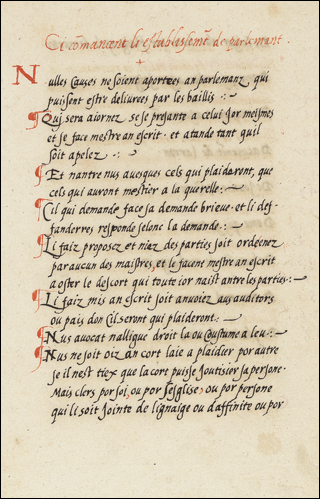 Ci cōmancent li establissemēt de parlemant.
Nulles Causes ne soient aportees an parlemanz, qui
puissent estre delivrees par les baillis :
Qui sera aiornez se se presante a celui ior meismes
et se face mestre an escrit. et atande tant quil
soit apelez :
Et nantre nus avesques cels qui plaideront, que
cels qui auront mestier a la querelle :
Cil qui demande face sa demande brieve. et li def-
fanderres responde selonc la demande :
Li faiz proposez et niez des parties soit ordenez
par aucun des maistres, et le facent mestre an escrit
a oster le descort qui toute ior naist antre les parties :
Li faiz mis an escrit soit anvoiez aus auditors
ou pais don Cil seront qui plaideront :
Nus avocat nalligue droit la ou Coustume a leu :
Nus ne soit oiz an cort laie a plaidier por autre
se il nest tiex que la cort puisse joutisier sa persone.
Mais clers por soi, ou por s'esglise, ou por persone
qui li soit jointe de lignaige ou daffinite ou por